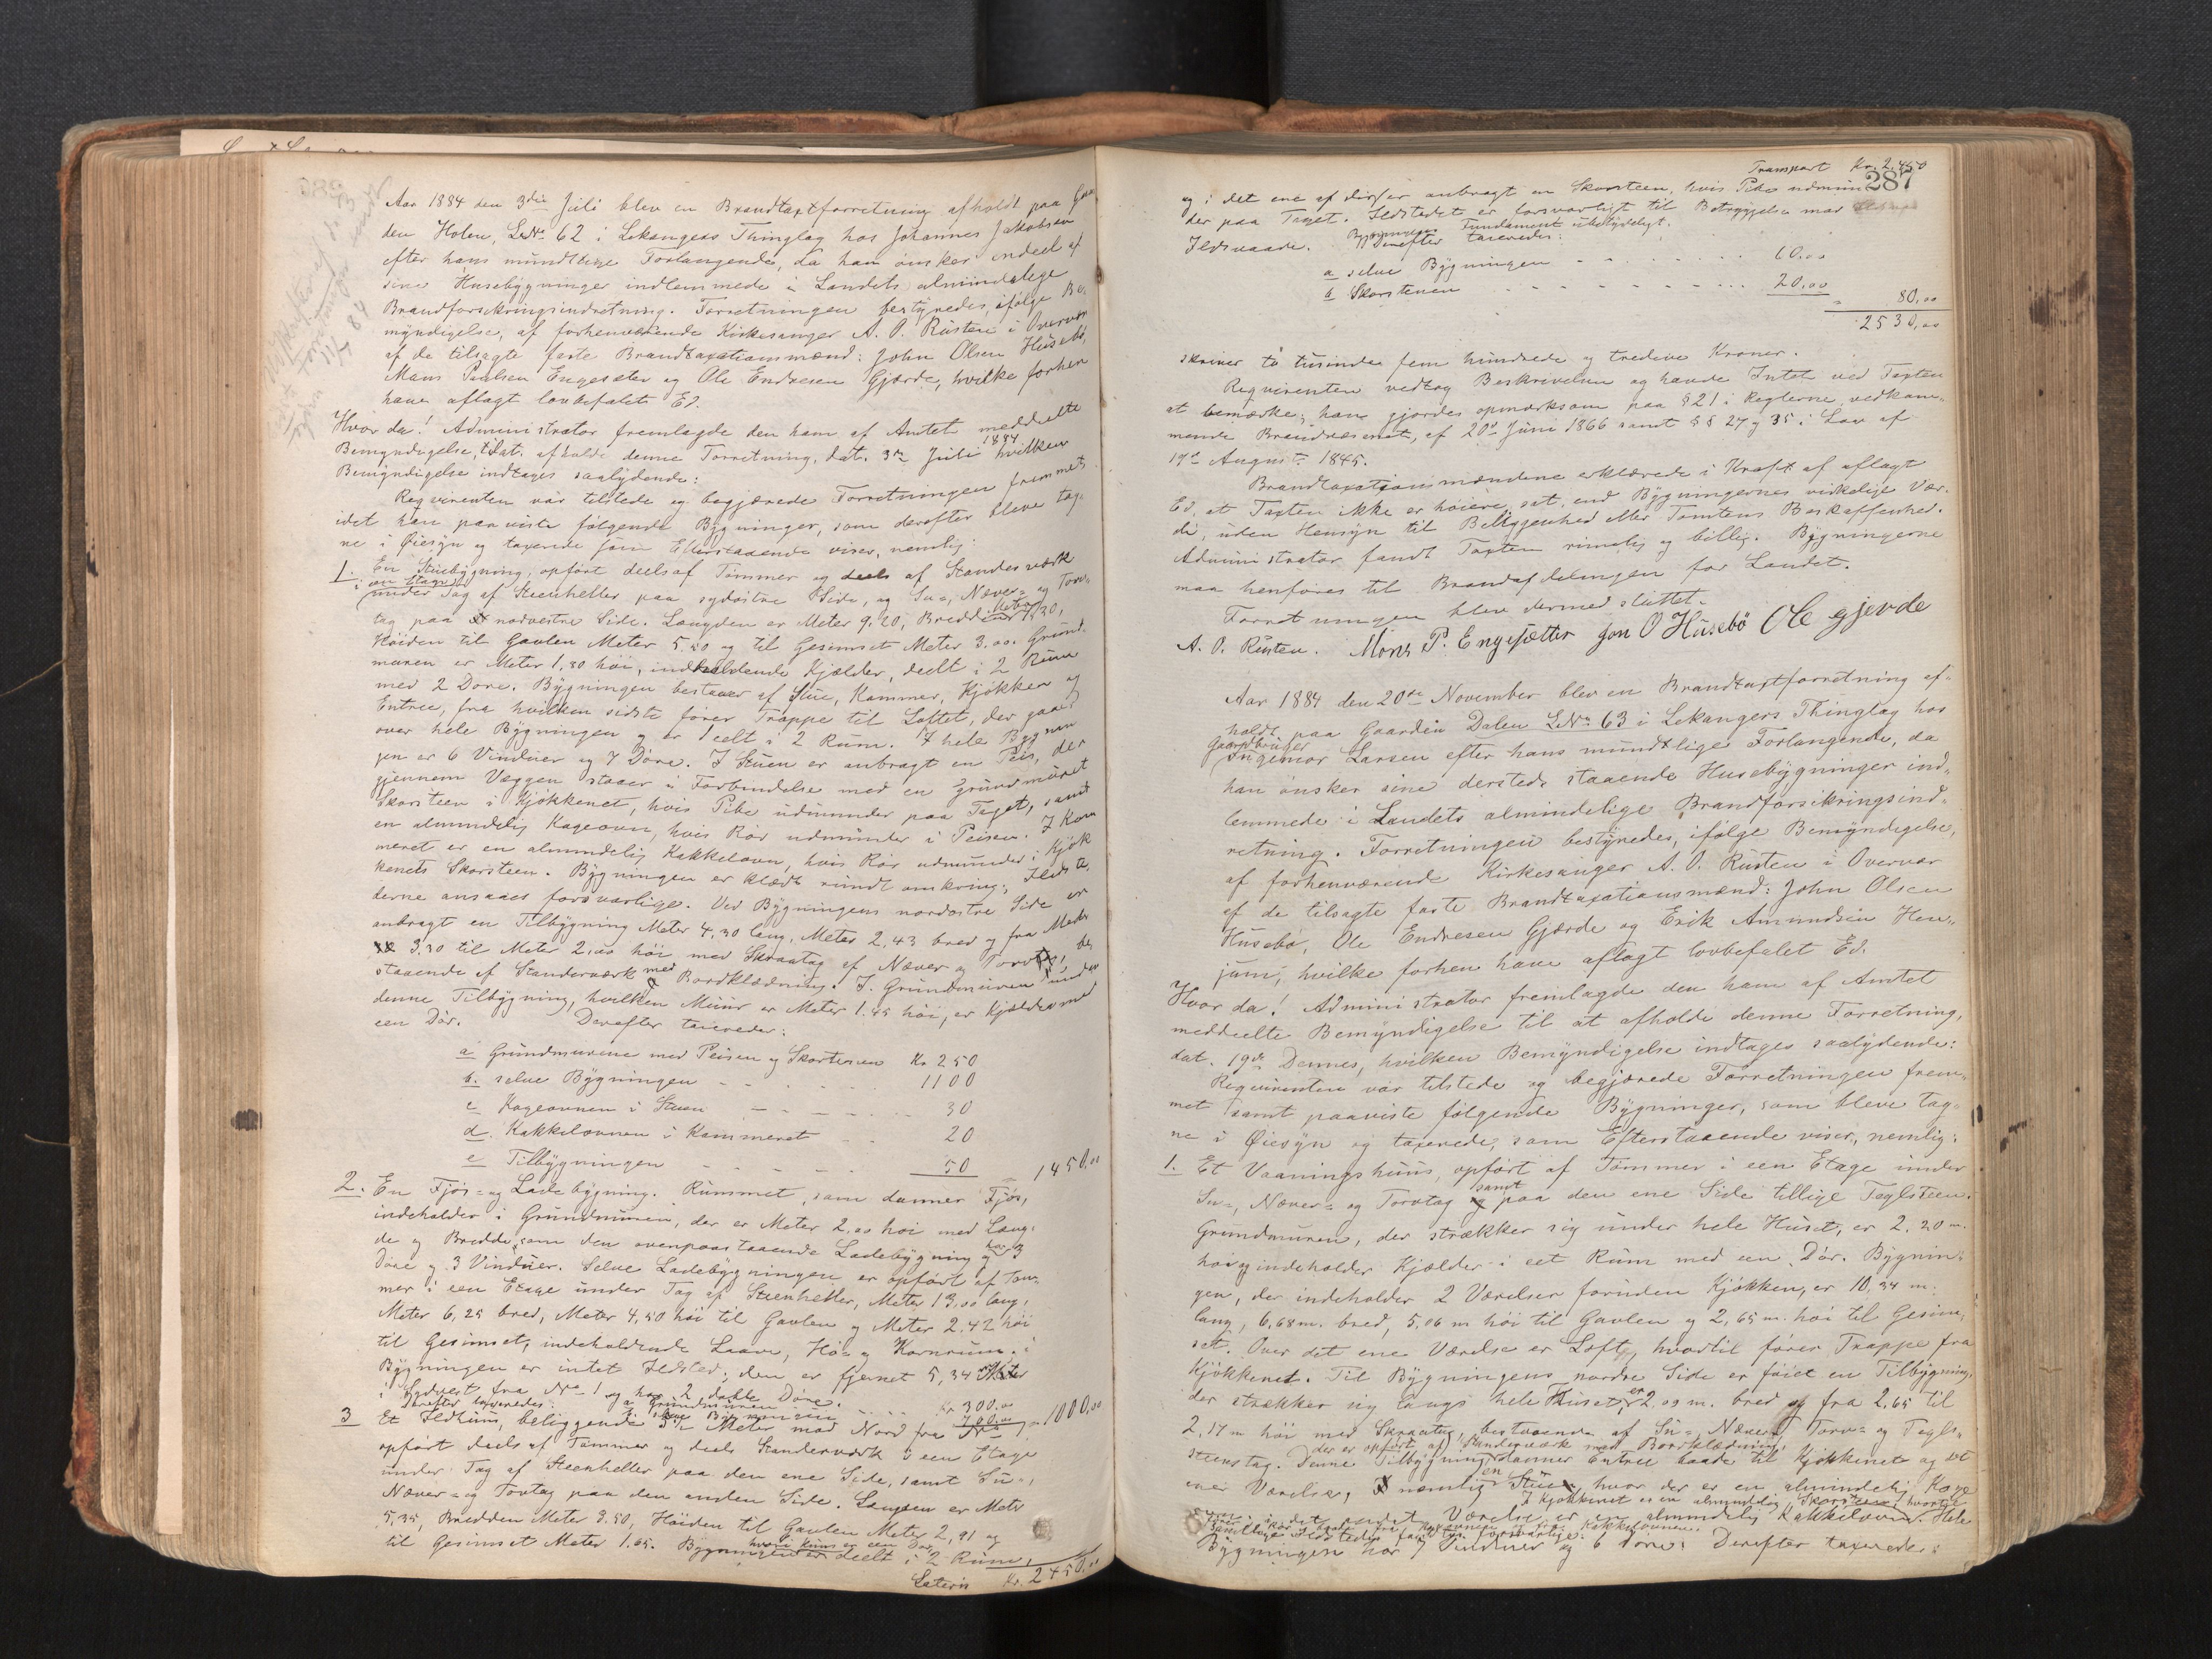 Aar 1884 den 3die Juli blev en Brandtaxtforretning afholdt paa Gaar
den Holen, LNo. 62 i Lekangers Thinglag hos Johannes Jakobsen
efter hans mundtlige Forlangende, da han ønsker endeel af
sine Husebygninger indlemmede i Landets almindelige
Brandforsikringsindretning. Forretningen bestyredes, ifølge Be-
myndigelse, af forhenværende Kirkesanger A. O. Rusten i Overvær
af de tilsagte faste Brandtaxationsmænd: John Olsen Husebø,
Mons Poulsen Engesæter og Ole Endresen Gjærde, hvilke forhen
have aflagt lovbefalet Ed.
Hvor da! Administrator fremlagde den ham af Amtet meddeelte
Bemyndigelse, til at afholde denne Forretning, dat. 3die Juli 1884 hvilken
Bemyndigelse indtages saalydende:
Reqvirenten var tilstede og begjærede Forretningen fremmet
idet han paaviste følgende Bygninger, som derefter bleve tag-
ne i Øiesyn og taxerede som Efterstaaende viser, nemlig:
1. En Stuebygning, opført deels af Tømmer og deels af Standerværk
i een Etage under Tag af Steenheller paa sydøstre Side, og Su-, Næver- og Torv-
tag paa nordvestre Side. Længden er Meter 9.20, Bredden Meter 7.30,
Høiden til Gavlen Meter 5.50 og til Gesimset Meter 3.00. Grund-
muren er Meter 1,80 høi, indholdende Kjælder, deelt i 2 Rum
med 2 Døre. Bygningen bestaaer af Stue, Kammer, Kjøkken og
Entree, fra hvilken sidste fører Trappe til Loftet, der gaaer
over hele Bygningen og er deelt i 2 Rum. I hele Bygnin
gen er 6 Vinduer og 7 Døre. I Stuen er anbragt en Peis, der
gjennem Væggen staaer i Forbindelse med en grundmuret
Skorsteen i Kjøkkenet, hvis Pibe udmunder paa Taget, samt
en almindelig Kageovn, hvis Rør udmunder i Peisen. I Kam
meret er en almindelig Kakkelovn, hvis Rør udmunder i Kjøk
kenets Skorsteen. Bygningen er klædt rundt omkring; Ildste-
derne ansaaes forsvarlige. Ved Bygningens nordøstre Side er
anbragt en Tilbygning Meter 4,30 lang, Meter 2,43 bred og fra Meter
3.30 til Meter 2,00 høi med Skraatag af Næver og Torv, be
staaende af Standerværk med Bordklædning. I Grundmuren under
denne Tilbygning, hvilken Muur er Meter 1.45 høi, er Kjælder med
een Dør. Derefter taxeredes:
a Grundmurene med Peisen og Skorstenen Kr 250
b. selve Bygningen - - - - 1100
c Kageovnen i Stuen - - - - 30
d. Kakkelovnen i Kammeret - - 20
e Tilbygningen - - - - 50 1450.00
2. En Fjøs- og Ladebygning. Rummet, som danner Fjøs,
indeholder i Grundmuren, der er Meter 2,00 høi med Læng-
de og Bredde som den ovenpaastaaende Ladebygning og har 3
Døre og 3 Vinduer. Selve Ladebygningen er opført af Tøm-
mer i een Etage under Tag af Steenheller, Meter 13,00 lang,
Meter 6,25 bred, Meter 4,50 høi til Gavlen og Meter 2.42 høi
til Gesimset, indeholdende Laave, Hø- og Kornrum. I
Bygningen er intet Ildsted; den er fjernet 5,34 Meter
i Sydvest fra No 1 og har 2 dobble Døre.
Derefter taxeredes: a Grundmuren - - Kr 300.00
b selve Bygningen - - 700.00 1000,00
3 Et Ildhuus, beliggende Meter mod Nord fra No 1,
opført deels af Tømmer og deels Standerværk i een Etage
under Tag af Steenheller paa den ene Side, samt Su-,
Næver- og Torvtag paa den anden Side. Længden er Meter
5,35, Bredden Meter 3.50, Høiden til Gavlen Meter 2,91 og
til Gesimset Meter 1.65. Bygningen er deelt i 2 Rum, hvori kuns er een Dør
Lateris Kr. 2450.00
Transport Kr. 2,450
287
og i det ene af disse er anbragt en Skorsteen, hvis Pibe udmun
der paa Taget. Ildstedet er forsvarligt til Betryggelse mod
Ildsvaade. Bygningens Fundament ubetydeligt.
Derefter taxeredes:
a selve Bygningen - - - - 60.00
b Skorstenen - - - - 20.00 80,00
2530,00
skriver to tusinde fem hundrede og tredive Kroner.
Reqvirenten vedtog Beskrivelsen og havde Intet ved Taxten
at bemærke; han gjordes opmærksom paa § 21 i Reglerne vedkom-
mende Brandvæsenet, af 20de Juni 1866 samt §§ 27 og 35 i Lov af
19de August 1845.
Brandtaxationsmændene erklærede i Kraft af aflagt
Ed, at Taxten ikke er høiere sat, end Bygningernes virkelige Vær-
di, uden Hensyn til Beliggenhed eller Tomtens Beskaffenhed.
Administrator fandt Taxten rimelig og billig. Bygningerne
maa henføres til Brandafdelingen for Landet.
Forretningen blev dermed sluttet.
A. O. Rusten. Mons P. Engesætter Jon O Husebö Ole gjerde
Aar 1884 den 20de November blev en Brandtaxtforretning af-
holdt paa Gaarden Dalen LNo. 63 i Lekangers Thinglag hos
Gaardbruger Ingemor Larsen efter hans mundtlige Forlangende, da
han ønsker sine dersteds staaende Husebygninger ind-
lemmede i Landets almindelige Brandforsikringsind-
retning. Forretningen bestyredes, ifølge Bemyndigelse,
af forhenværende Kirkesanger A. O. Rusten i Overvær
af de tilsagte faste Brandtaxationsmænd: John Olsen
Husebø, Ole Endresen Gjærde og Erik Amundsen Hen-
jum, hvilke forhen have aflagt lovbefalet Ed.
Hvor da! Administrator fremlagde den ham af Amtet
meddeelte Bemyndigelse til at afholde denne Forretning,
dat. 19de Dennes, hvilken Bemyndigelse indtages saalydende:
Reqvirenten var tilstede og begjærede Forretningen frem-
met samt paaviste følgende Bygninger, som bleve tag-
ne i Øiesyn og taxerede, som Efterstaaende viser, nemlig:
1. Et Vaaningshuus, opført af Tømmer i een Etage under
Su-, Næver- og Torvtag samt paa den ene Side tillige Taglsteen.
Grundmuren, der strækker sig under hele Huset, er 2.20 m.
høi og indeholder Kjælder i eet Rum med een Dør. Bygnin-
gen, der indeholder 2 Værelser foruden Kjøkken, er 10,34 m.
lang, 6,68 m. bred, 5,06 m høi til Gavlen og 2,65 m. høi til Gesim-
set. Over det ene Værelse er Loft, hvortil fører Trappe fra
Kjøkkenet. Til Bygningens nordre Side er føiet en Tilbygning,
der strækker sig langs hele Huset, er 2,09 m. bred og fra 2,65 til
2,17 m høi med Skraatag, bestaaende af Su-, Næver-, Torv- og Tagl-
steens tag. Denne Tilbygning, der er opført af Standerværk med Bordklædning, danner Entree baade til Kjøkkenet og det
ene Værelse, nemlig en Stue, hvor der er en almindelig Kage
I Kjøkkenet er en almindelig Skorsteen, hvortil
ovn; i det andet Værelse er en almindelig Kakkelovn. Hele
Bygningen har 7 Vinduer og 6 Døre. Derefter taxeredes: